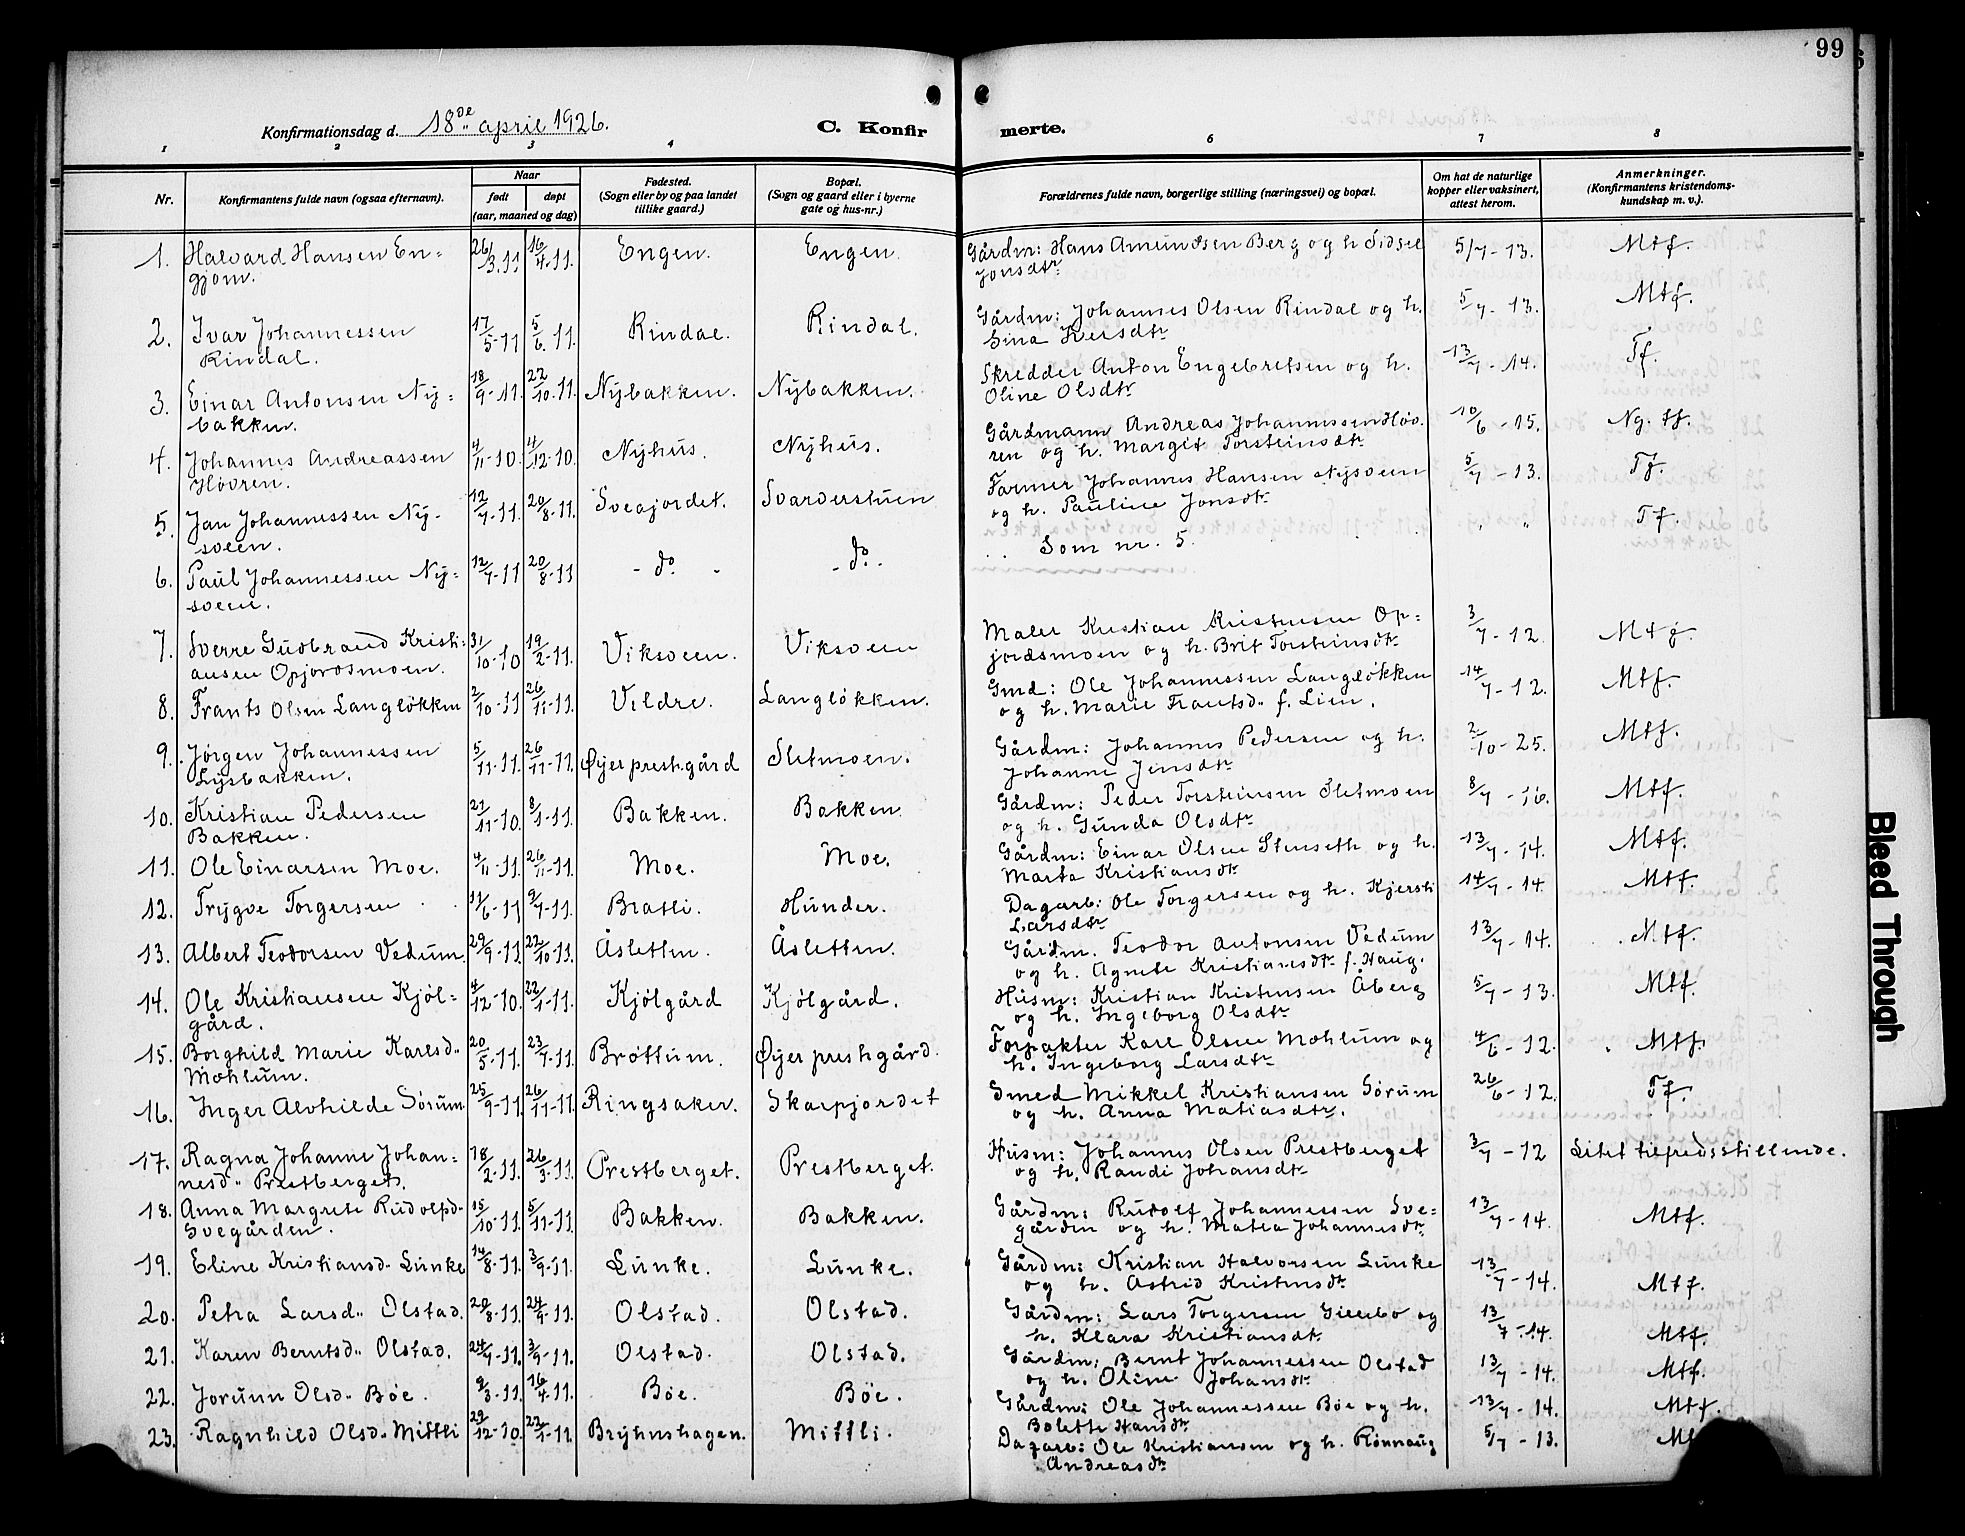 99
Konfirmationsdag d. 18de april 1926.
C. Konfir
merte.
1 2 3 4 6 7 8
Nr.
Konfirmantens fulde navn (ogsaa efternavn).
Naar
født
døpt
(aar, maaned og dag)
Fødested.
(Sogn eller by og paa landet
tillike gaard.)
Bopæl.
(Sogn og gaard eller i byerne
gate og hus-nr.)
Forældrenes fulde navn, borgerlige stilling (næringsvei) og bopæl.
Om hat de naturlige
kopper eller vaksinert,
attest herom.
Anmerkninger.
(Konfirmantens kristendoms-
kundskap m. v.).
1. Halvard Hansen En- 26/3.11 16/4.11. Engen. Engen. Gårdm: Hans Amundsen Berg og h Sidsel 5/7-13. Mtf.
gjom. Jonsdtr
2. Ivar Johannessen 17/5-11 5/6.11. Rindal. Rindal. Gårdm: Johannes Olsen Rindal og h. 5/7-13. Mtf.
Rindal. Sina Iversdtr
3. Einar Antonsen Ny- 18/9-11. 22/10.11. Nybakken. Nybakken. Skredder Anton Engebretsen og h. 13/7-14. Tf.
bakken. Oline Olsdtr
4. Johannes Andreassen 4/11-10. 4/12-10. Nyhus. Nyhus. Gårdmann Andreas Johannessen Høv- 10/6-15. Ng. tf.
Høvren. ren og h. Margit Torsteinsdtr
5. Jan Johannessen Ny- 12/7-11. 20/8-11. Sveajordet. Svarverstuen Farmer Johannes Hansen Nysveen 5/7-13. Tf.
sveen. og h. Pauline Jonsdtr
6. Paul Johannessen Ny- 12/7-11 20/8-11 - do - - do. - Som nr. 5. " " Tf.
sveen.
7. Sverre Gudbrand Kristi- 31/10-10 19/2-11. Viksveen. Viksveen Maler Kristian Kristensen Op- 3/7-12. Mtf.
ansen Opjordsmoen. jordsmoen og h. Brit Torsteinsdtr
8. Frants Olsen Langløkken 2/10-11 26/11-11. Vildre. Langløkken. Gmd: Ole Johannessen Langløkken 14/7-12. Mtf.
og h. Marie Frantsd. f. Lien.
9. Jørgen Johannessen 5/11-11. 26/11-11. Øyer prestegård Sletmoen. Gårdm: Johannes Pedersen og h. 2/10-25. Mtf.
Lysbakken. Johanne Jensdtr
10. Kristian Pedersen 27/11-10. 8/1-11. Bakken. Bakken. Gårdm: Peder Torsteinsen Sletmoen 8/7-16. Mtf.
Bakken. og h. Gunda Olsdtr
11. Ole Einarsen Moe. 4/11-11. 26/11-11. Moe. Moe. Gårdm: Einar Olsen Stenseth og h. 13/7-14. Mtf.
Marta Kristiansdtr
12. Trygve Torgersen 11/6-11 9/7-11. Bratli. Hunder. Dagarb: Ole Torgersen og h. Kjersti 14/7-14. Mtf.
Larsdtr
13. Albert Teodorsen Vedum. 29/9-11. 22/10-11. Åsletten. Åsletten. Gårdm. Teodor Antonsen Vedum 13/7-14. Mtf.
og h. Agnete Kristiansdtr f. Haug.
14. Ole Kristiansen Kjøl- 4/12-10. 22/1-11. Kjølgård Kjølgård. Husm: Kristian Kristensen Åberg 5/7-13. Mtf.
gård. og h. Ingeborg Olsdtr
15. Borghild Marie Karlsd. 20/5-11. 23/7-11. Brøttum. Øyer prestegård. Forpakter Karl Olsen Mæhlum og 4/6-12. Mtf.
Mæhlum. h. Ingeborg Larsdtr
16. Inger Alvhilde Sørum 25/9-11. 26/11-11. Ringsaker. Skarpjordet Smed Mikkel Kristiansen Sørum 26/6-12. Tf.
og h. Anna Matiasdtr.
17. Ragna Johanne Johan- 18/2-11. 26/3-11. Prestberget. Prestberget. Husm: Johannes Olsen Prestberget 3/7-12 Litet tilfredsstillende.
nesd. Prestberget. og h. Randi Johansdtr
18. Anna Margrete Rudolfsd. 15/10-11. 5/11-11. Bakken. Bakken. Gårdm: Rudolf Johannessen Sve- 13/7-14. Mtf.
Svegården. gården og h. Matea Johannesdtr
19. Eline Kristiansd. Lunke 14/8-11. 3/9-11. Lunke. Lunke. Gårdm: Kristian Halvorsen Lunke 13/7-14. Mtf.
og h. Astrid Kristensdtr
20. Petra Larsd. Olstad. 20/8-11. 24/9-11. Olstad. Olstad. Gårdm: Lars Torgersen Gillebo og 13/7-14. Mtf.
h. Klara Kristiansdtr
21. Karen Berntsd. Olstad. 24/7-11. 3/9-11. Olstad. Olstad. Gårdm: Bernt Johannessen Olstad 13/7-14. Mtf.
og h. Oline Johansdtr
22. Jorunn Olsd. Bøe. 9/3-11. 16/4-11. Bøe. Bøe. Gårdm: Ole Johannessen Bøe og h. 13/7-14. Mtf.
Bolette Hansdtr
23. Ragnhild Olsd. Mittli 29/12-10. 22/1-11. Bryhnshagen. Mittli. Dagarb: Ole Kristiansen og h. Rønnaug 5/7-13.
Andreasdtr
Bleed Through